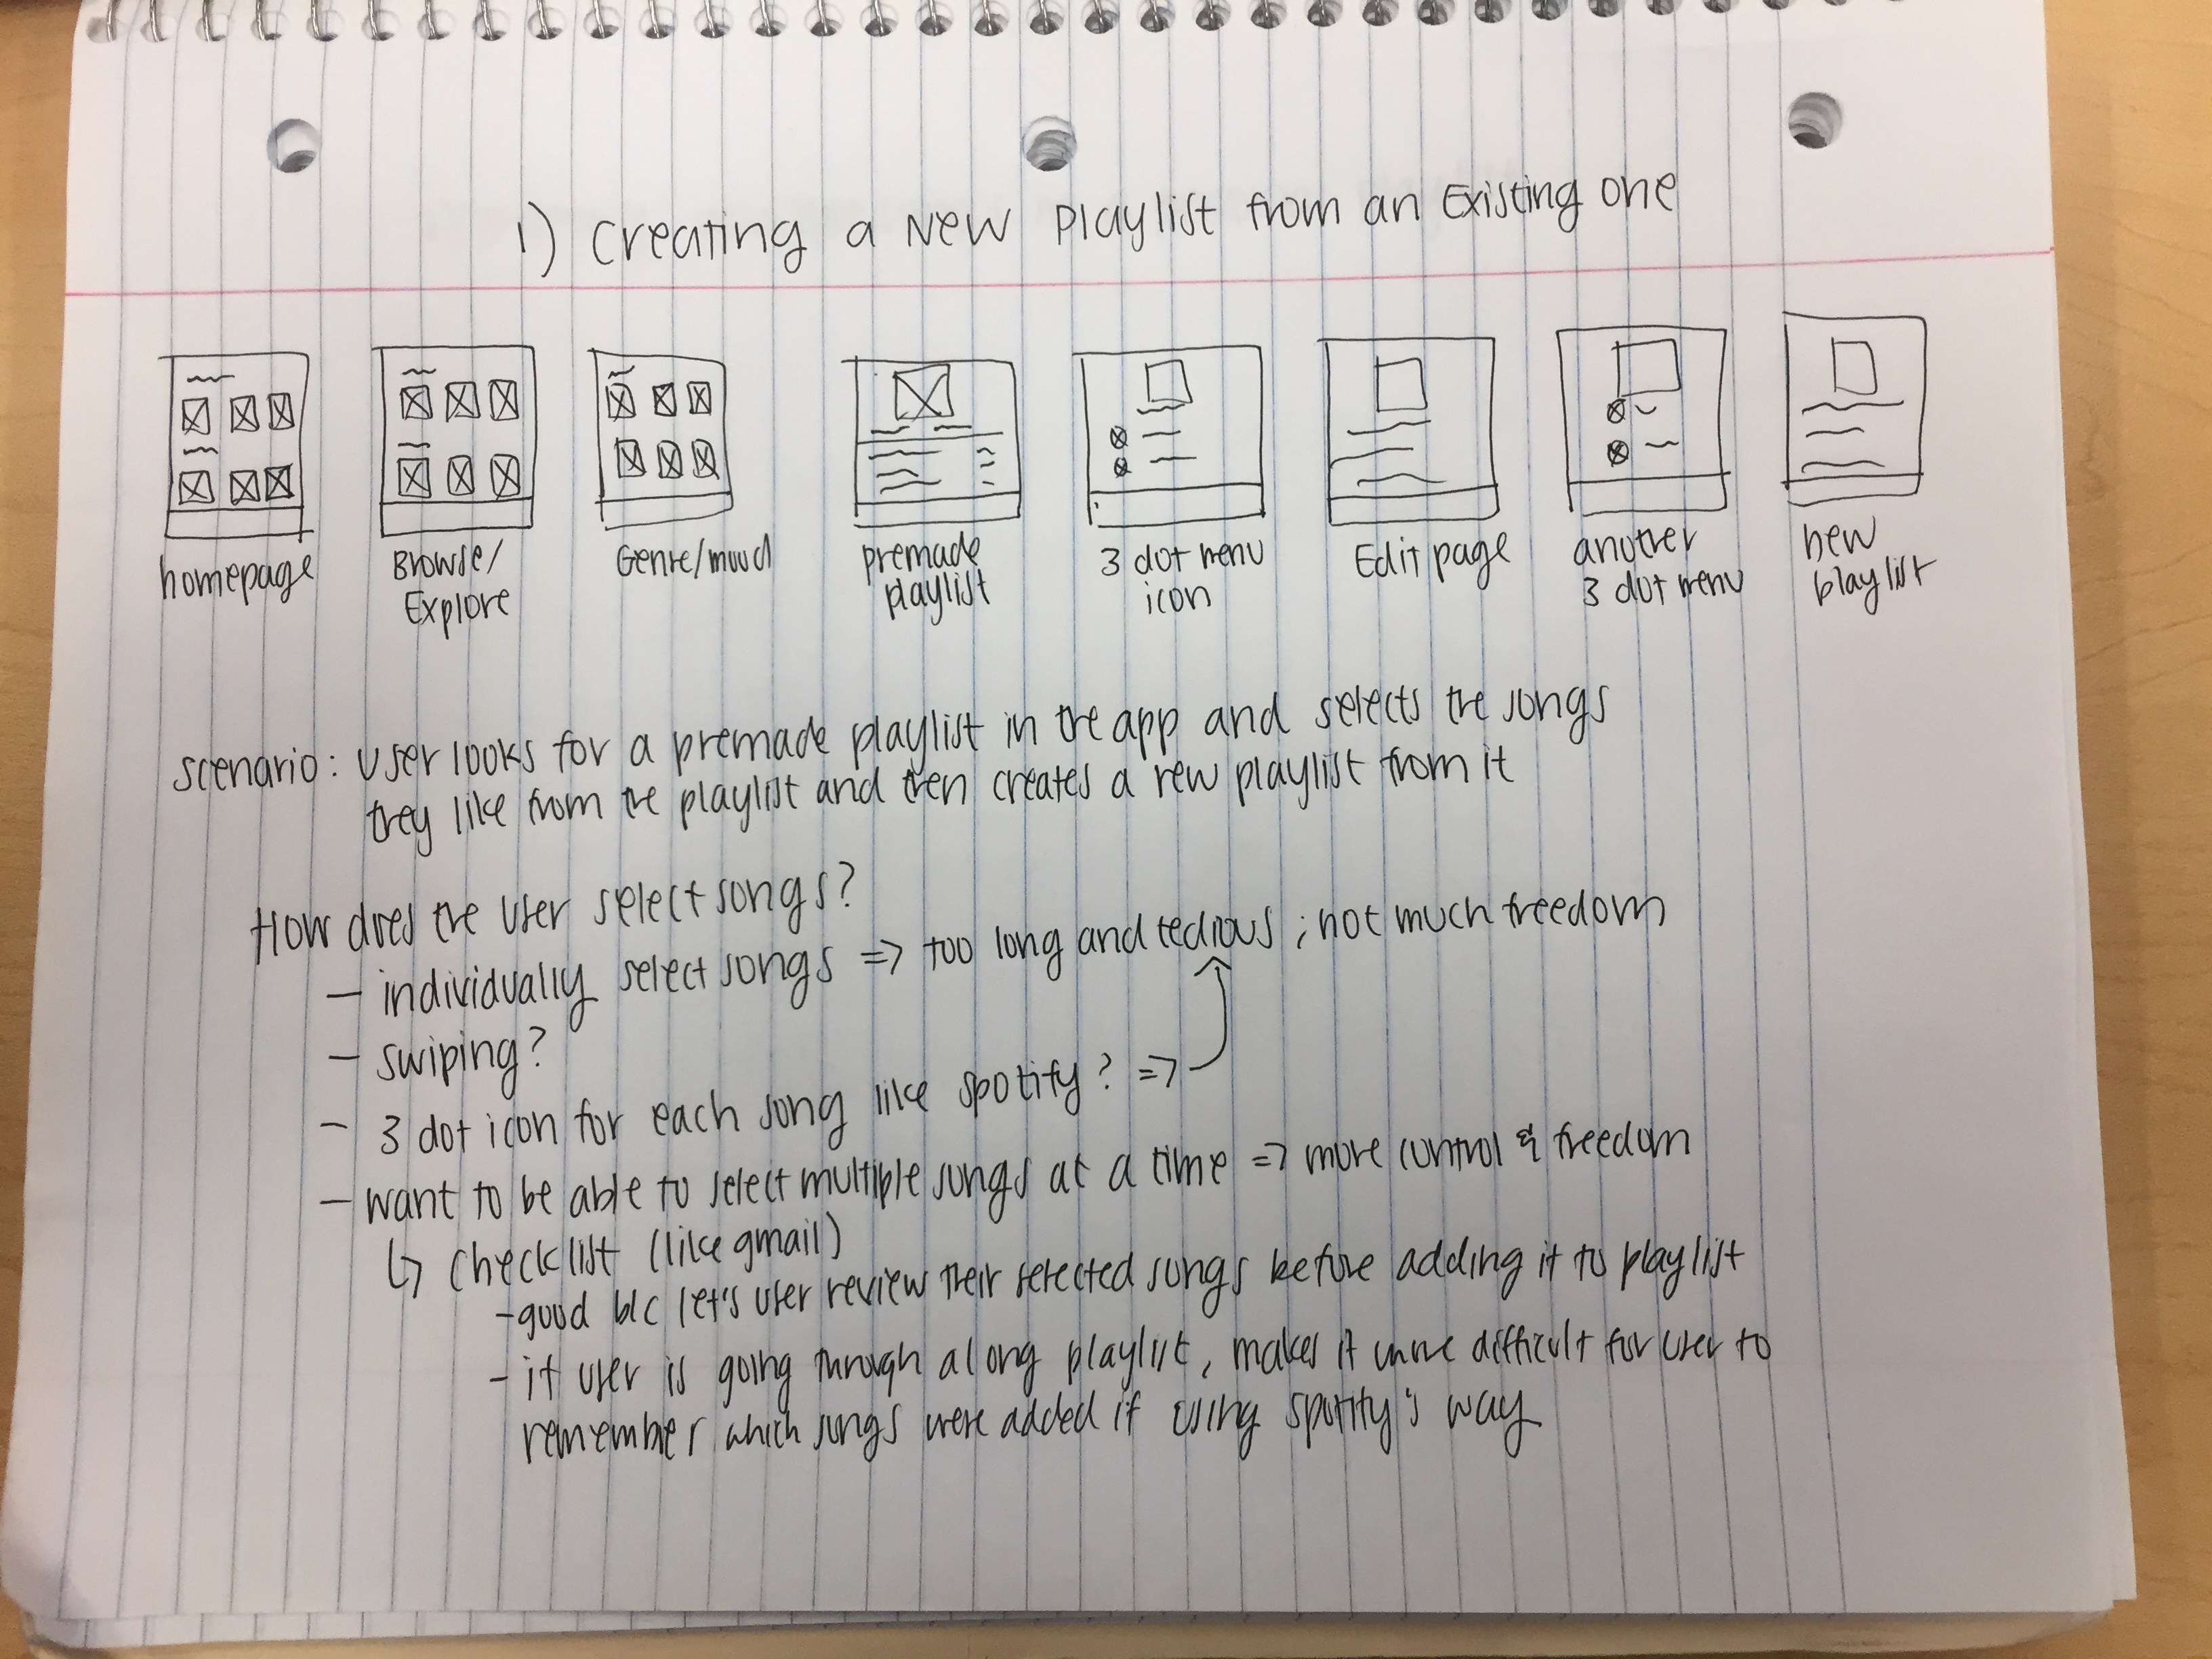 1) Creating a New Playlist from an Existing one
homepage
Browse/
Explore
Genre/mood
premade
playlist
3 dot menu
icon
Edit page
another
3 dot menu
new
playlist
scenario: user looks for a premade playlist in the app and selects the songs
they like from the playlist and then creates a new playlist from it
How does the user select songs?
- individually select songs => too long and tedious ; not much freedom
- swiping?
- 3 dot icon for each song like spotify? =>
- want to be able to select multiple songs at a time => more control & freedom
↳ checklist (like gmail)
- good b/c let's user review their selected songs before adding it to playlist
- if user is going through a long playlist, makes it more difficult for user to
remember which songs were added if using spotify's way